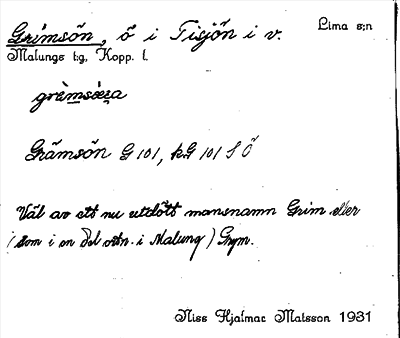 Grimsön, ö i Tisjön i v. Lima s:n
Malungs t:g, Kopp. l.
gràmsöɛna
Grämsön G 101, kG 101 S Ö
Väl av ett nu utdött mansnamn Grim eller
(som i en del ortn. i Malung) Grym.
Niss Hjalmar Matsson 1931